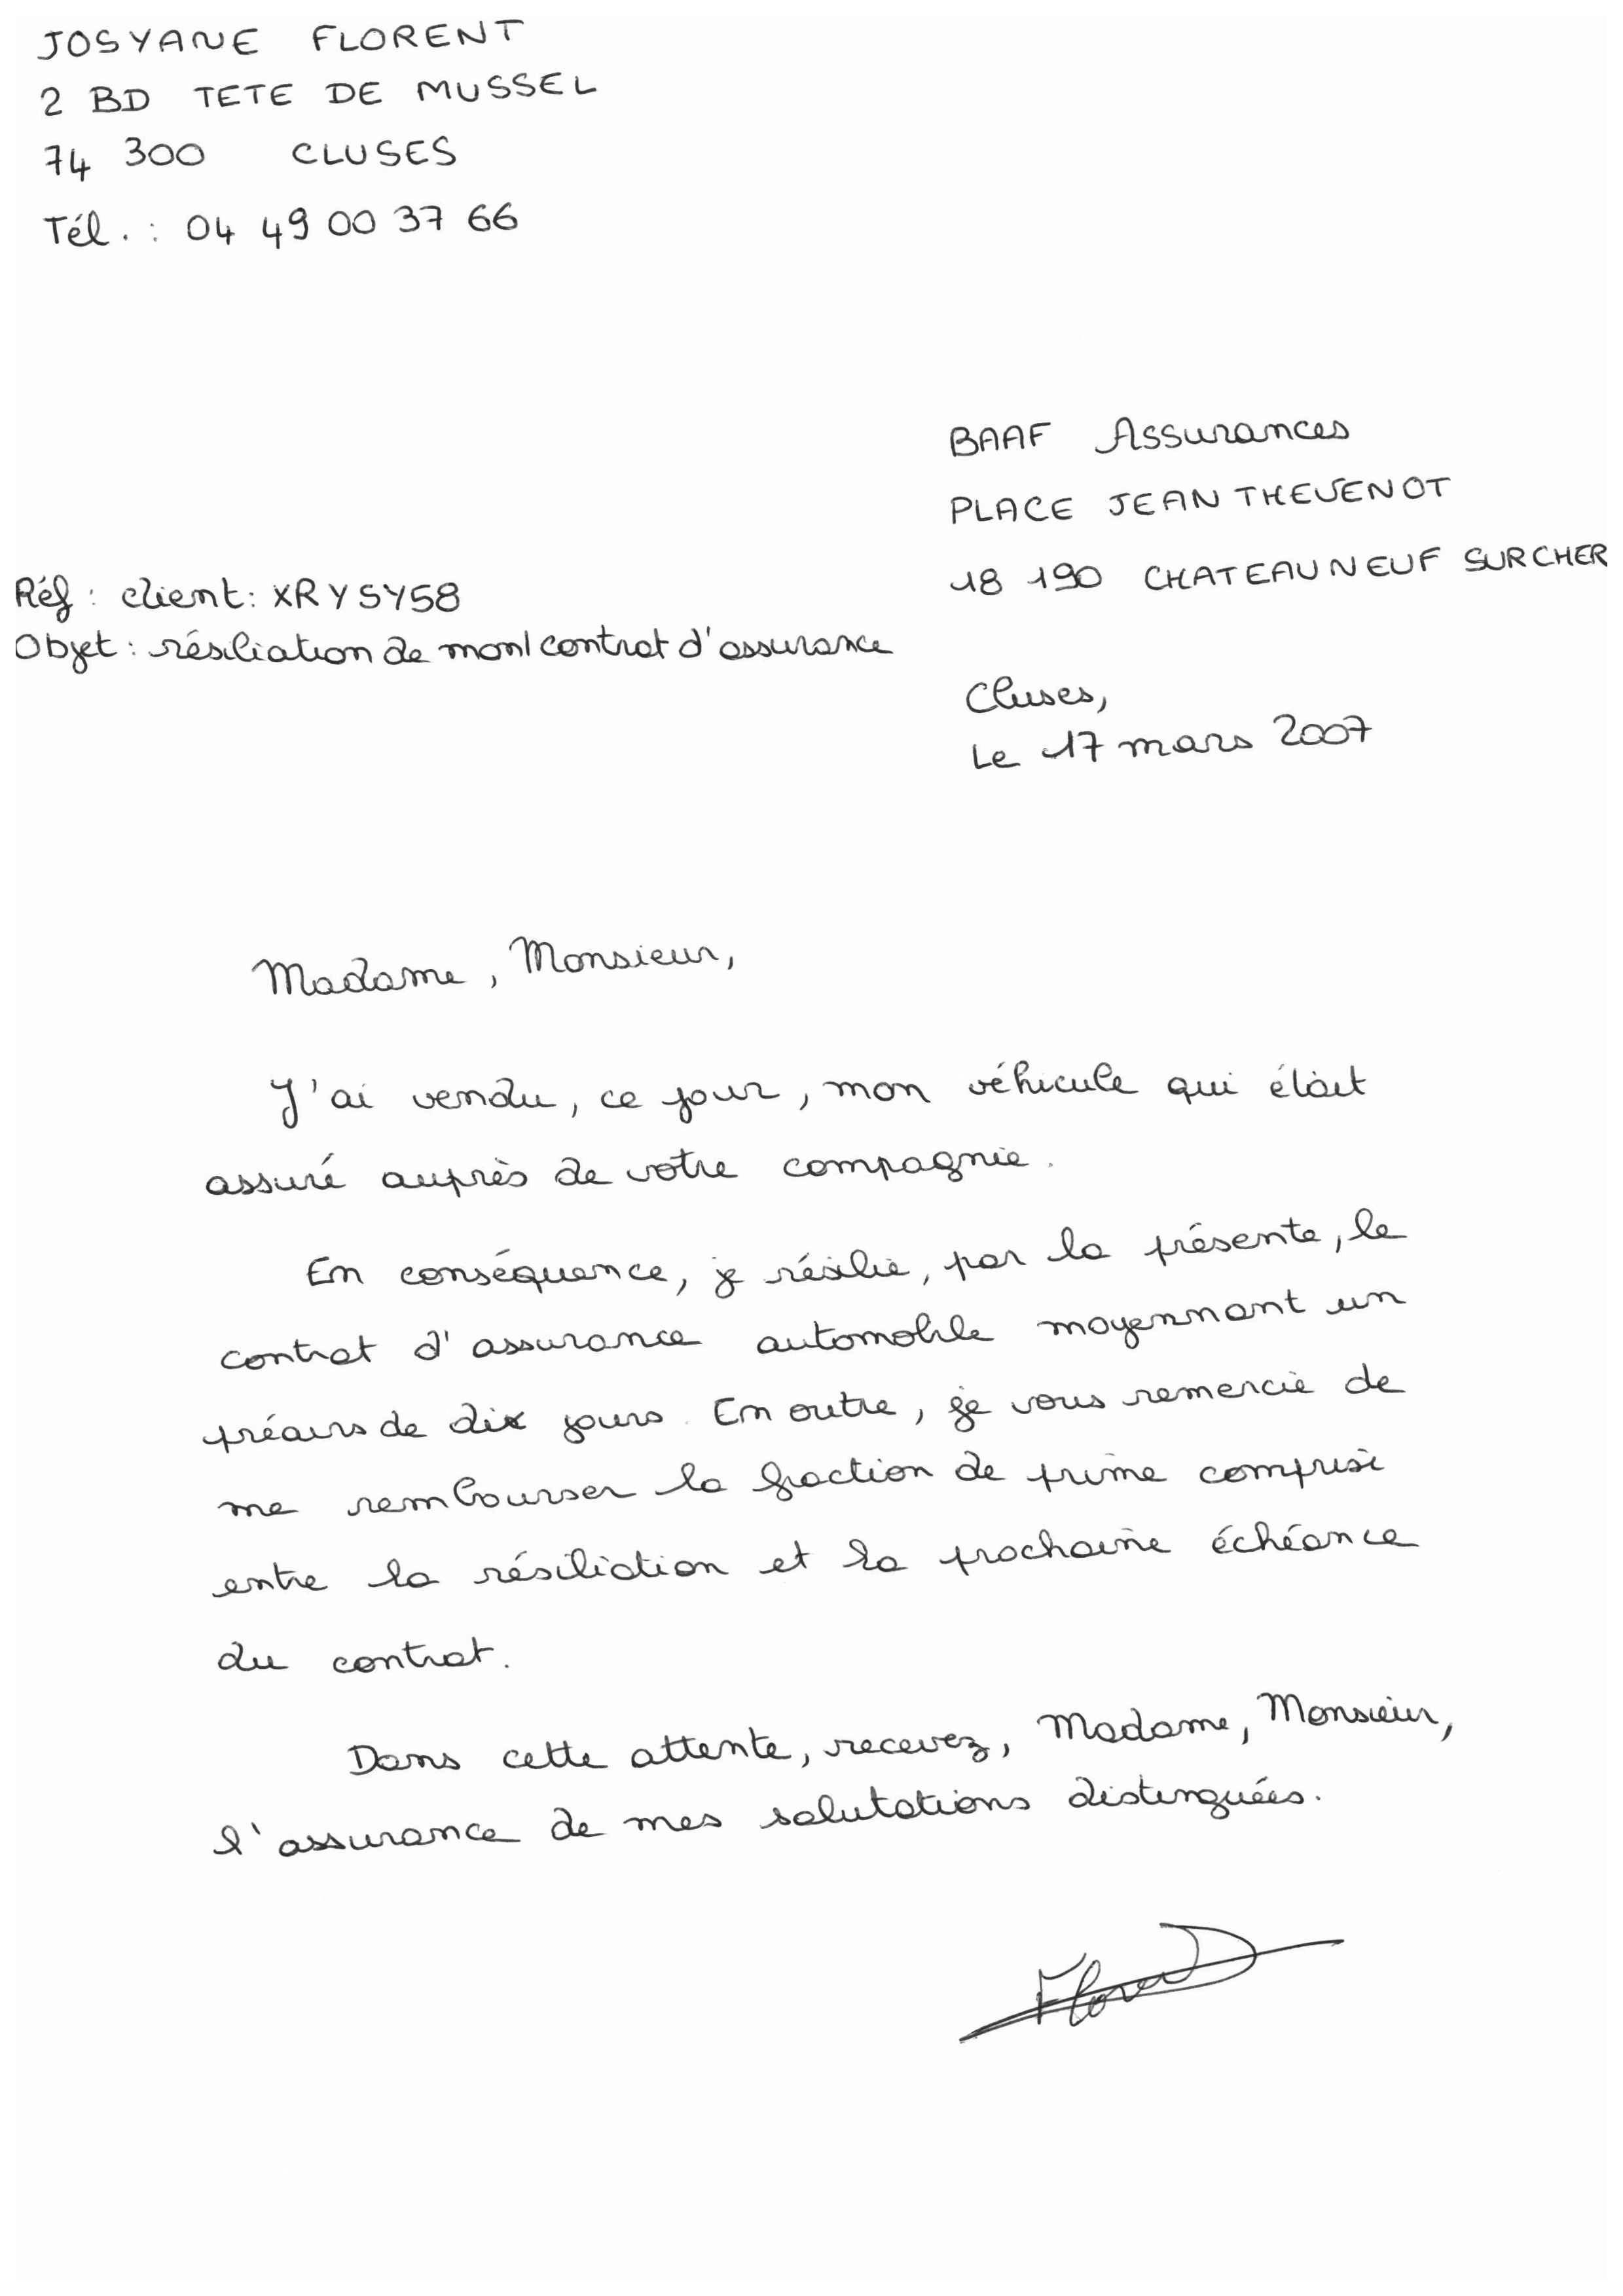 JOSYANE FLORENT
2 BD TETE DE MUSSEL
74 300 CLUSES
Tél. : 04 49 00 37 66
BAAF Assurances
PLACE JEAN THEVENOT
18 190 CHATEAUNEUF SUR CHER
Réf : client : XRYSY58
Objet : résiliation de mon contrat d'assurance
Cluses,
Le 17 mars 2007
Madame, Monsieur,
J'ai vendu, ce jour, mon véhicule qui était
assuré auprès de votre compagnie.
En conséquence, je résilie, par la présente, le
contrat d'assurance automobile moyennant un
préavis de dix jours. En outre, je vous remercie de
me rembourser la fraction de prime comprise
entre la résiliation et la prochaine échéance
du contrat.
Dans cette attente, recevez, Madame, Monsieur,
l'assurance de mes salutations distinguées.
Florent